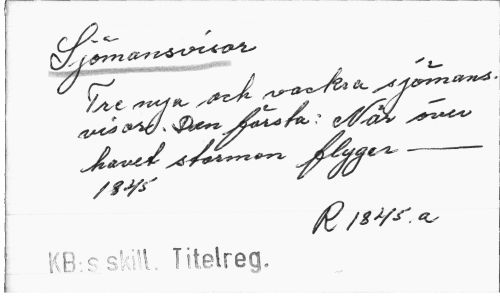 Sjömansvisor
Tre nya och vackra sjömans-
visor. Den första: När över
havet stormen flyger —
1845
R 1845.a
KB:s skill. Titelreg.